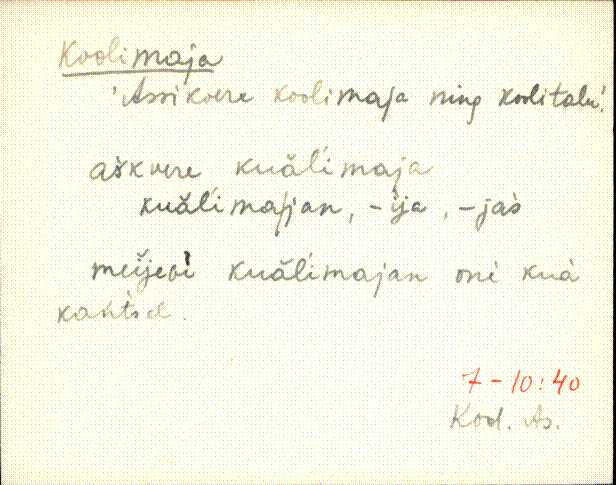 Koolimaja
'Assikvere koolimaja ning koolitalu'.
aškvere kuăĺimaja
kuăĺimajjan, -ija, -jas
kuăĺimajan oni kuà
kahtsel.
7-10:40
Kod. As.